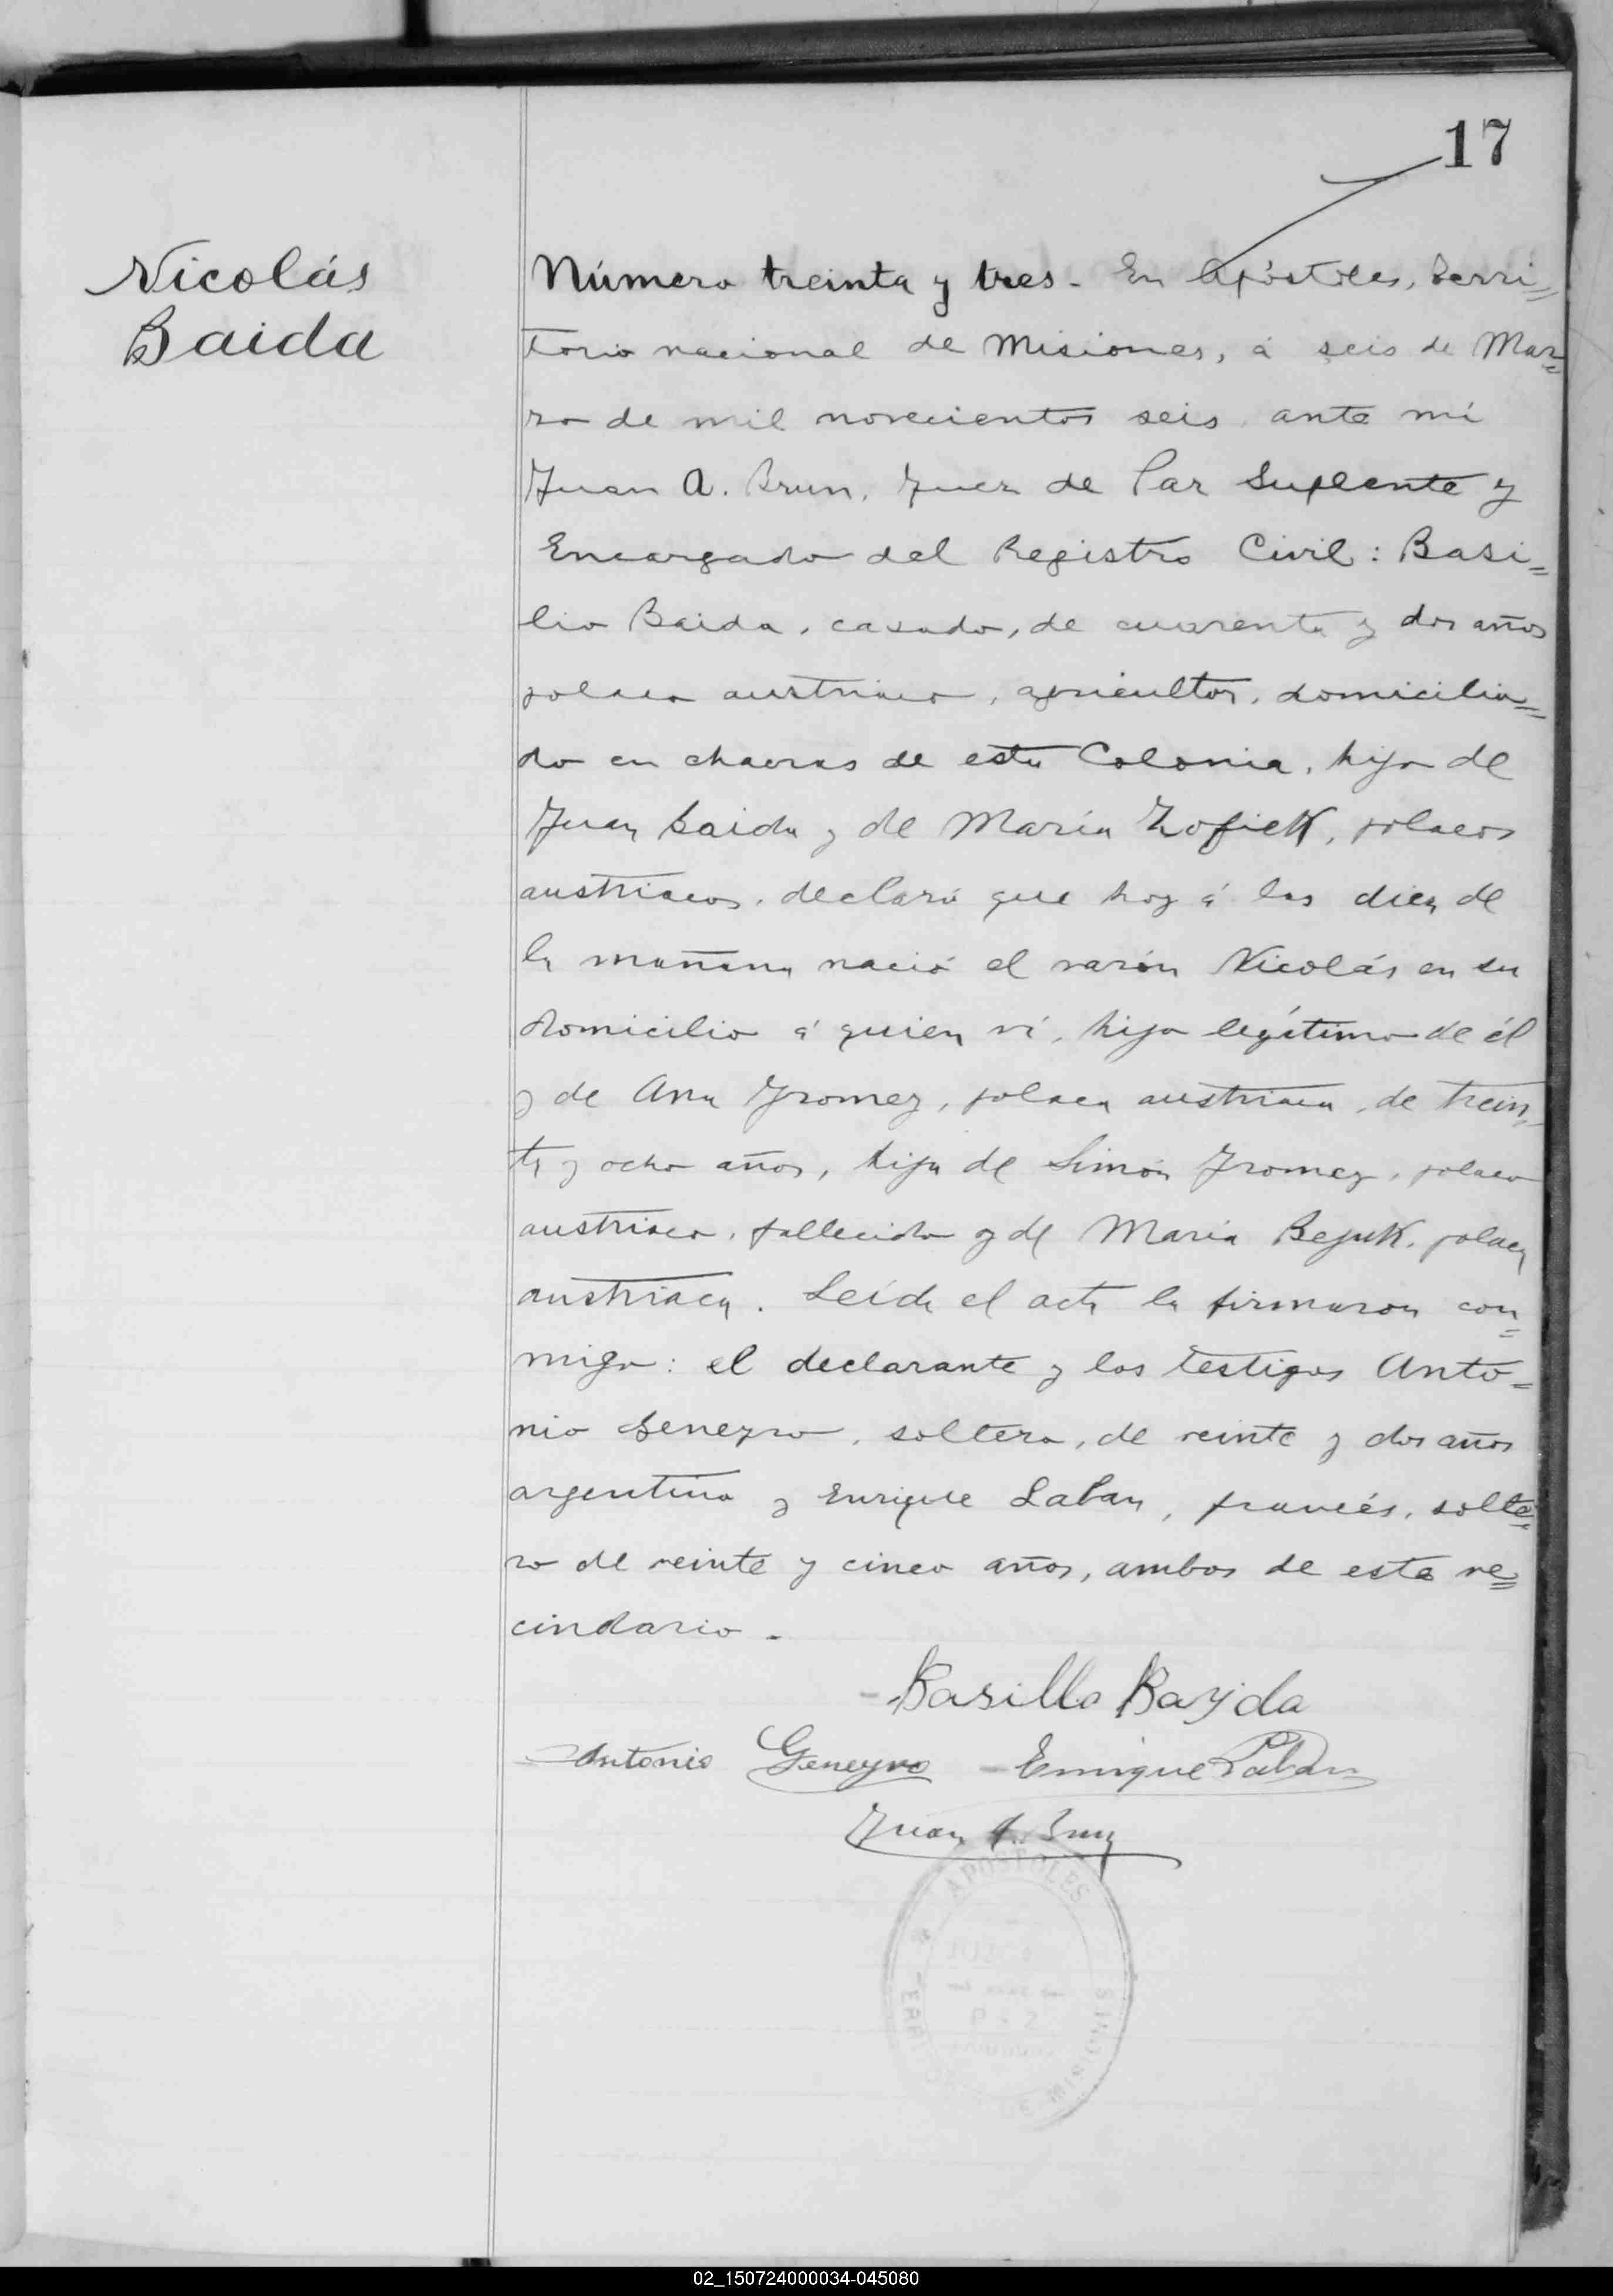 17
Nicolás
Baida
Número treinta y tres. En Apóstoles, Terri=
torio nacional de Misiones, á seis de Mar=
zo de mil novecientos seis, ante mí
Juan A. Brun, Juez de Paz Suplente y
Encargado del Registro Civil: Basi=
lio Baida, casado, de cuarenta y dos años
polaco austriaco, agricultor, domicilia=
do en chacras de esta Colonia, hijo de
Juan Baida y de María Zofiek, polacos
austriacos, declaró que hoy á las diez de
la mañana nació el varón Nicolás en su
domicilio á quien ví, hijo legítimo de él
y de Ana Jromez, polaca austriaca, de trein=
ta y ocho años, hija de Simón Jromez, polaco
austriaco, fallecido y de María Bejuk, polaca
austriaca. Leída el acta la firmaron con=
migo: el declarante y los testigos Anto=
nio Geneyro, soltero, de veinte y dos años
argentino y Enrique Laban, francés, solte=
ro de veinte y cinco años, ambos de este ve=
cindario.
Basillo Bayda
Antonio Geneyro - Enrique Laban
Juan A. Brun
APOSTOLES
MISIONES
02_150724000034-045080